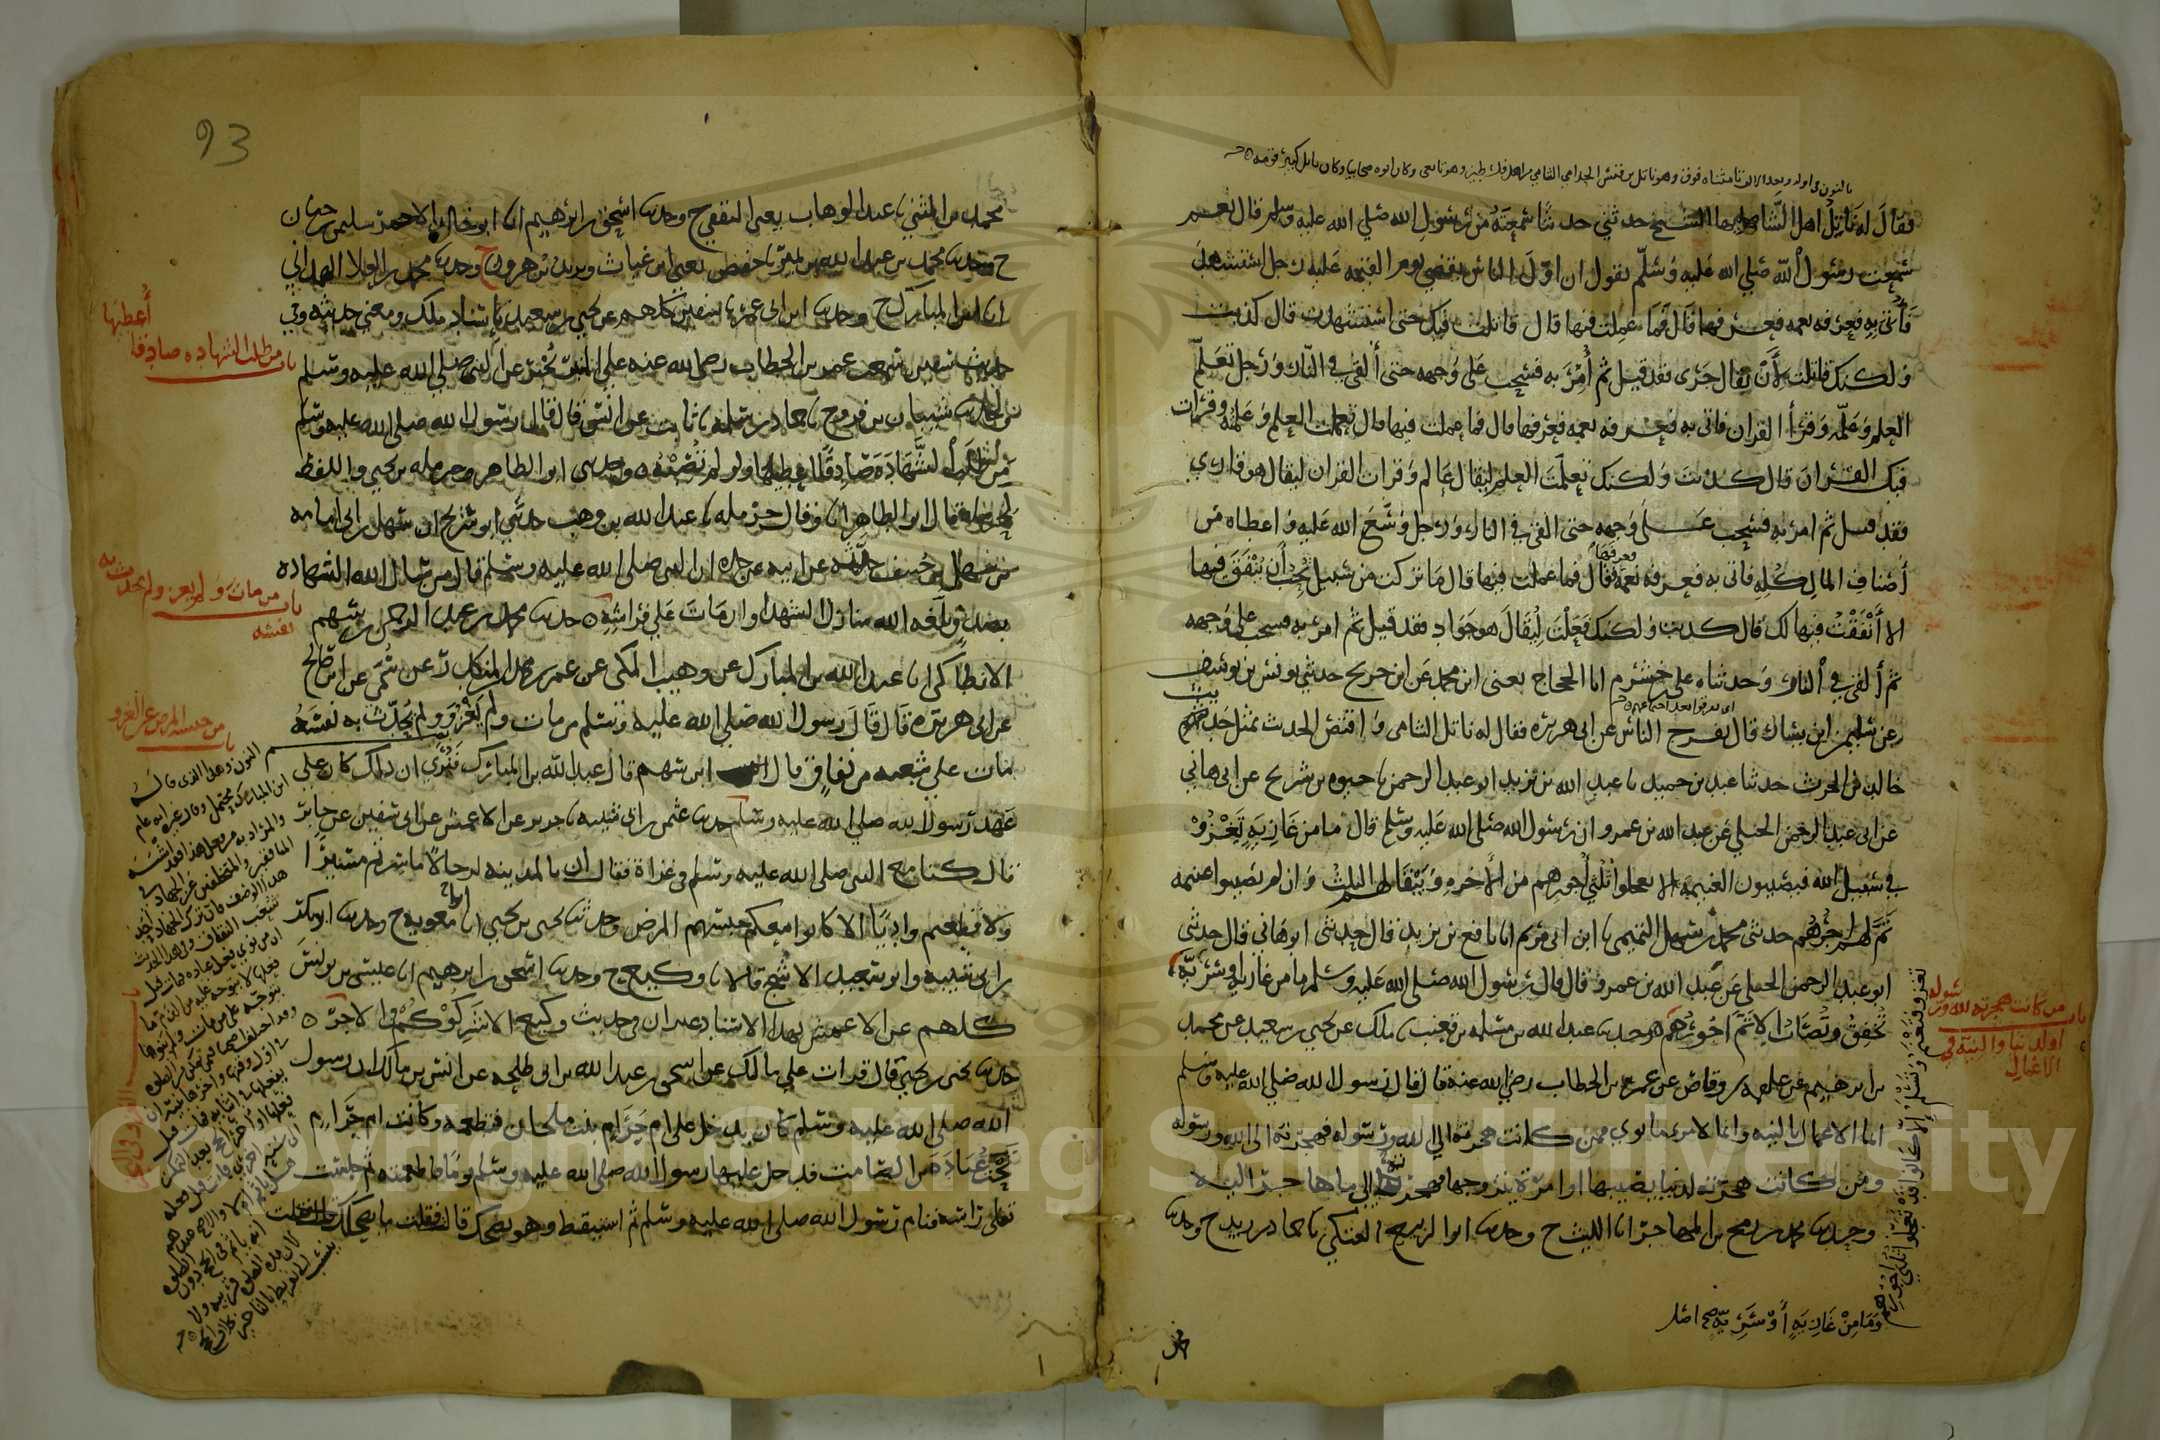 بالنون في اوله وبعد الالف تا مثناه فوق وهو ناتل بن قيس الجذامي الشامي من اهل فلسطين وهو تابعي وكان ابوه صحابيا وكان ناتل كبير قومه
فقال له ناتل اهل الشام ايها الشيخ حدثني حديثا سمعته من رسول الله صلي الله عليه وسلم قال نعم
سمعت رسول الله صلي الله عليه وسلم يقول ان اول الناس يقضي يوم القيمه عليه رجل استشهد
فأتي به فعرفه نعمه فعرفها قال فما عملت فيها قال قاتلت فيك حتى استشهدت قال كذبت
ولكنك قاتلت لأن يقال جرى فقد قيل ثم أمر به فسحب على وجهه حتى ألقي في النار ورجل تعلم
العلم وعلمه وقرأ القران فاتى به فعرفه نعمه فعرفها قال فما عملت فيها قال تعلمت العلم وعلمته وقرات
فيك القران قال كذبت ولكنك تعلمت العلم ليقال عالم وقرات القران ليقال هو قاري
فقد قيل ثم امر به فسحب على وجهه حتى القي في النار ورجل وسع الله عليه واعطاه من
أصناف المال كله فاتى به فعرفه نعمه فعرفها قال فما عملت فيها قال ما تركت من سبيل تحب أن ينفق فيها
الا أنفقت فيها لك قال كذبت ولكنك فعلت ليقال هو جواد فقد قيل ثم امر به فسحب على وجهه
ثم ألقي في النار وحدثناه علي بن خشرم انا الحجاج يعنى ابن محمد عن ابن جريج حدثني يونس بن يوسف
عن سليمن ابن يسار قال تفرج الناس عن ابى هريره فقال له ناتل الشامي واقتص الحديث بمثل حديث
خالد بن الحرث حدثنا عبد بن حميد نا عبد الله بن يزيد ابو عبد الرحمن نا حيوه بن شريح عن ابى هاني
عن ابى عبد الرحمن الحبلي عن عبد الله بن عمرو ان رسول الله صلى الله عليه وسلم قال ما من غازيه تغزو
في سبيل الله فيصيبون الغنيمه الا تعجلوا ثلثي أجرهم من الأخره ويبقا لهم الثلث وان لم يصيبوا غنيمه
تم لهم اجرهم حدثني محمد بن سهل التميمي نا ابن ابي مريم انا نافع بن يزيد قال حدثني ابو هاني قال حدثني
ابو عبد الرحمن الحبلي عن عبد الله بن عمرو قال قال رسول الله صلى الله عليه وسلم ما من غازيه او سريه
تخفق وتصاب الا تم اجورهم وحدثنا عبد الله بن مسلمه بن قعنب نا ملك عن يحيى بن سعيد عن محمد
بن ابرهيم عن علقمه بن وقاص عن عمر بن الخطاب رضي الله عنه قال قال رسول الله صلي الله عليه وسلم
انما الاعمال بالنيه وانما لامرى ما نوي فمن كانت هجرته الي الله ورسوله فهجرته الى الله ورسوله
ومن كانت هجرته لدنيا يصيبها او امرة يتزوجها فهجرته الي ما هاجر اليه
وحدثنا محمد بن رمح بن المهاجر انا الليث ح وحدثنا ابو الربيع العتكي نا حماد بن زيد ح وحدثنا
وما من غازيه أو سريه صح اصل
باب من كانت هجرته لله ورسوله
او لدنيا والنية في
الاعمال
93
محمد بن المثني نا عبد الوهاب يعني الثقفي ح وحدثنا اسحق بن ابرهيم انا ابو خالد الاحمر سليمن بن حيان
ح وحدثنا محمد بن عبد الله بن نمير نا حفص يعني ابن غياث ويزيد بن هرون ح وحدثنا محمد بن العلا الهمداني
انا ابن المبارك ح وحدثنا ابن ابى عمر نا سفين كلهم عن يحيى بن سعيد باسناد ملك ومعني حديثه وفي
حديث سفين سمعت عمر بن الخطاب رضي الله عنه علي المنبر يخبر عن النبي صلي الله عليه وسلم
وحدثنا شيبان بن فروخ نا حماد بن سلمه نا ثابت عن انس قال قال رسول الله صلى الله عليه وسلم
من طلب الشهادة صادقا اعطيها ولو لم تصبه وحدثني ابو الطاهر وحرمله بن يحيي واللفظ
لحرمله قال ابو الطاهر انا وقال حرمله نا عبد الله بن وهب حدثني ابو شريح ان سهل بن ابى امامه
بن سهل بن حنيف حدثه عن ابيه عن جده ان النبي صلى الله عليه وسلم قال من سال الله الشهاده
بصدق بلغه الله منازل الشهدا وان مات على فراشه حدثنا محمد بن عبد الرحمن بن سهم
الانطاكي انا عبد الله بن المبارك عن وهيب المكى عن عمر بن محمد بن المنكدر عن سمى عن ابى صالح
عن ابى هريره قال قال رسول الله صلي الله عليه وسلم من مات ولم يغز ولم يحدث به نفسه
مات علي شعبه من نفاق قال ابن سهم قال عبد الله بن المبارك فنرى ان ذلك كان علي
عهد رسول الله صلي الله عليه وسلم حدثنا عثمن بن ابى شيبه نا جرير عن الاعمش عن ابى سفين عن جابر
قال كنا مع النبي صلى الله عليه وسلم فى غزاة فقال ان بالمدينه لرجالا ما سرتم مسيرا
ولا قطعتم واديا الا كانوا معكم حبسهم المرض وحدثنا يحيى بن يحيى انا ابو معويه ح وحدثنا ابو بكر
بن ابى شيبه وابو سعيد الاشج قالا نا وكيع ح وحدثنا اسحق بن ابرهيم انا عيسى بن يونس
كلهم عن الاعمش بهذا الاسناد غير ان في حديث وكيع الا شركوكم في الاجر
حدثنا يحيى بن يحيي قال قرات علي مالك عن اسحق بن عبد الله بن ابى طلحه عن انس بن مالك ان رسول
الله صلى الله عليه وسلم كان يدخل على ام حرام بنت ملحان فتطعمه وكانت ام حرام
تحت عبادة بن الصامت فدخل عليها رسول الله صلى الله عليه وسلم يوما فاطعمته ثم جلست
تفلى راسه فنام رسول الله صلى الله عليه وسلم ثم استيقظ وهو يضحك قال فقلت ما يضحكك
باب من طلب الشهاده صادقا
أعطيها
باب من مات ولم يغز ولم يحدث به
نفسه
باب من حبسه المرض عن الغزو
Copyright © King Saud University
1957